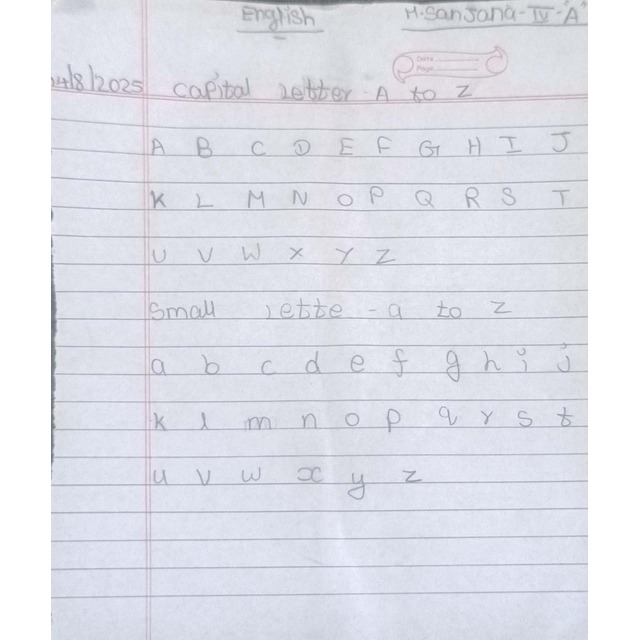 English H. Sanjana - IV - 'A'
Date
Page
14/8/2025 Capital letter - A to Z
A B C D E F G H I J
K L M N O P Q R S T
U V W X Y Z
Small lette - a to z
a b c d e f g h i j
k l m n o p q r s t
u v w x y z